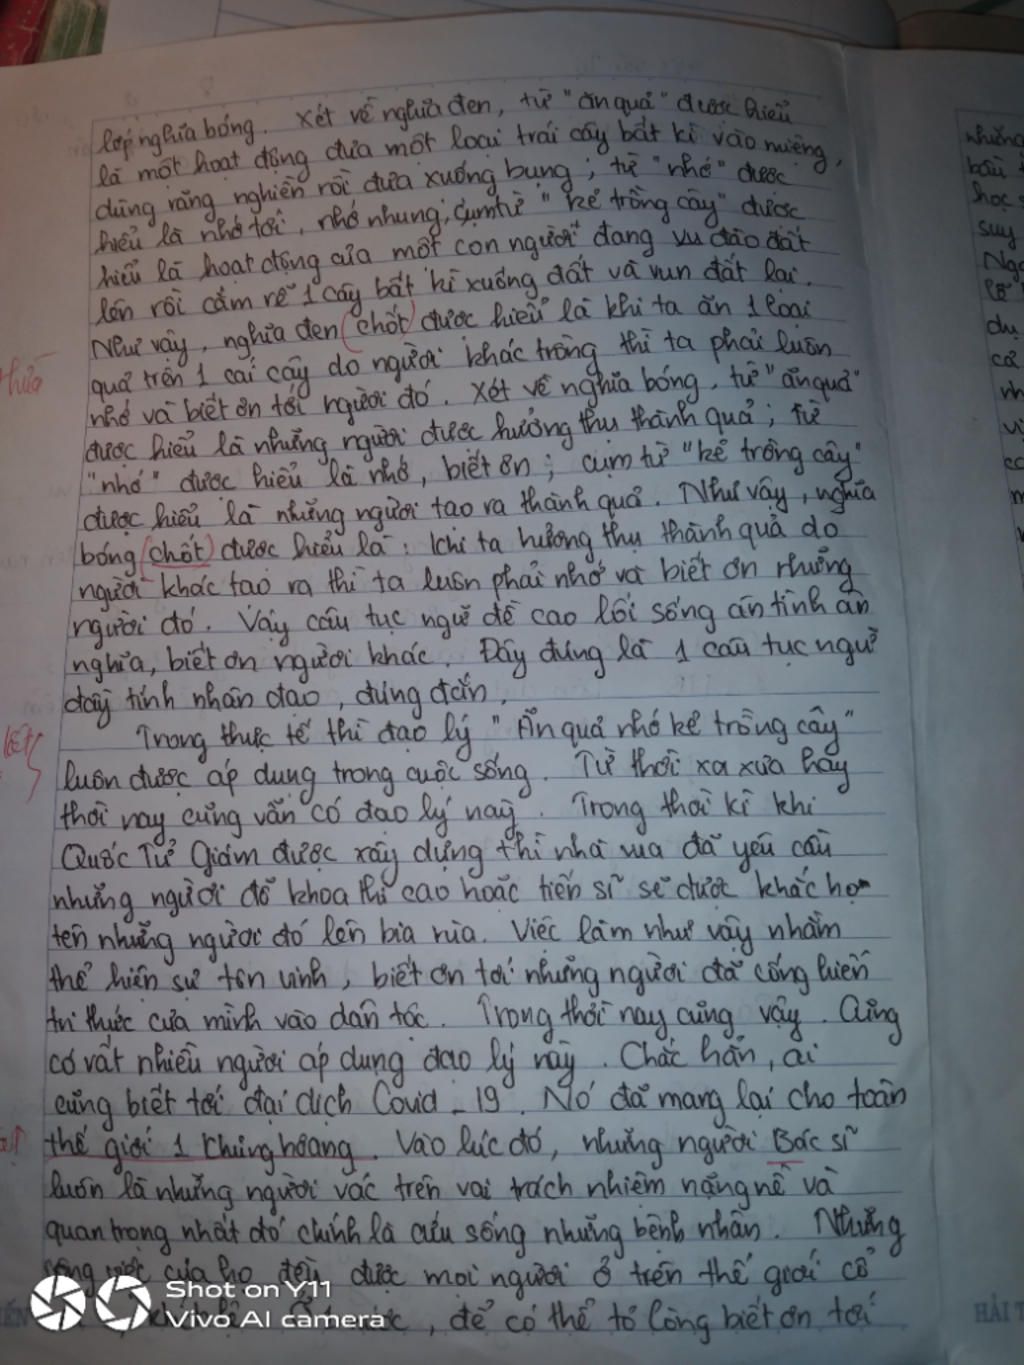 lớp nghĩa bóng. Xét về nghĩa đen, từ "ăn quả" được hiểu
là một hoạt động đưa một loại trái cây bất kì vào miệng,
dùng răng nghiền rồi đưa xuống bụng; từ "nhớ" được
hiểu là nhớ tới, nhớ nhung; cụm từ "kẻ trồng cây" được
hiểu là hoạt động của một con người đang vu đào đất
lên rồi cắm rễ 1 cây bất kì xuống đất và vun đất lại.
Như vậy, nghĩa đen (chốt) được hiểu là khi ta ăn 1 loại
quả trên 1 cái cây do người khác trồng thì ta phải luôn
nhớ và biết ơn tới người đó. Xét về nghĩa bóng, từ "ăn quả"
được hiểu là những người được hưởng thụ thành quả; từ
"nhớ" được hiểu là nhớ, biết ơn; cụm từ "kẻ trồng cây"
được hiểu là những người tạo ra thành quả. Như vậy, nghĩa
bóng (chốt) được hiểu là: khi ta hưởng thụ thành quả do
người khác tạo ra thì ta luôn phải nhớ và biết ơn những
người đó. Vậy câu tục ngữ đề cao lối sống ân tình ân
nghĩa, biết ơn người khác. Đây đúng là 1 câu tục ngữ
đầy tính nhân đạo, đúng đắn.
Trong thực tế thì đạo lý "Ăn quả nhớ kẻ trồng cây"
luôn được áp dụng trong cuộc sống. Từ thời xa xưa hay
thời nay cũng vẫn có đạo lý này. Trong thời kì khi
Quốc Tử Giám được xây dựng thì nhà vua đã yêu cầu
những người đỗ khoa thi cao hoặc tiến sĩ sẽ được khắc họ
tên những người đó lên bia rùa. Việc làm như vậy nhằm
thể hiện sự tôn vinh, biết ơn tới những người đã cống hiến
tri thức của mình vào dân tộc. Trong thời nay cũng vậy. Cũng
có rất nhiều người áp dụng đạo lý này. Chắc hẳn, ai
cũng biết tới đại dịch Covid_19. Nó đã mang lại cho toàn
thế giới 1 khủng hoảng. Vào lúc đó, những người Bác sĩ
luôn là những người vác trên vai trách nhiệm nặng nề và
quan trọng nhất đó chính là cứu sống những bệnh nhân. Những
của họ đều được mọi người ở trên thế giới cổ
để có thể tỏ lòng biết ơn tới
thừa
những
học
suy
dụ
cả
HẢI T
Shot on Y11
Vivo AI camera